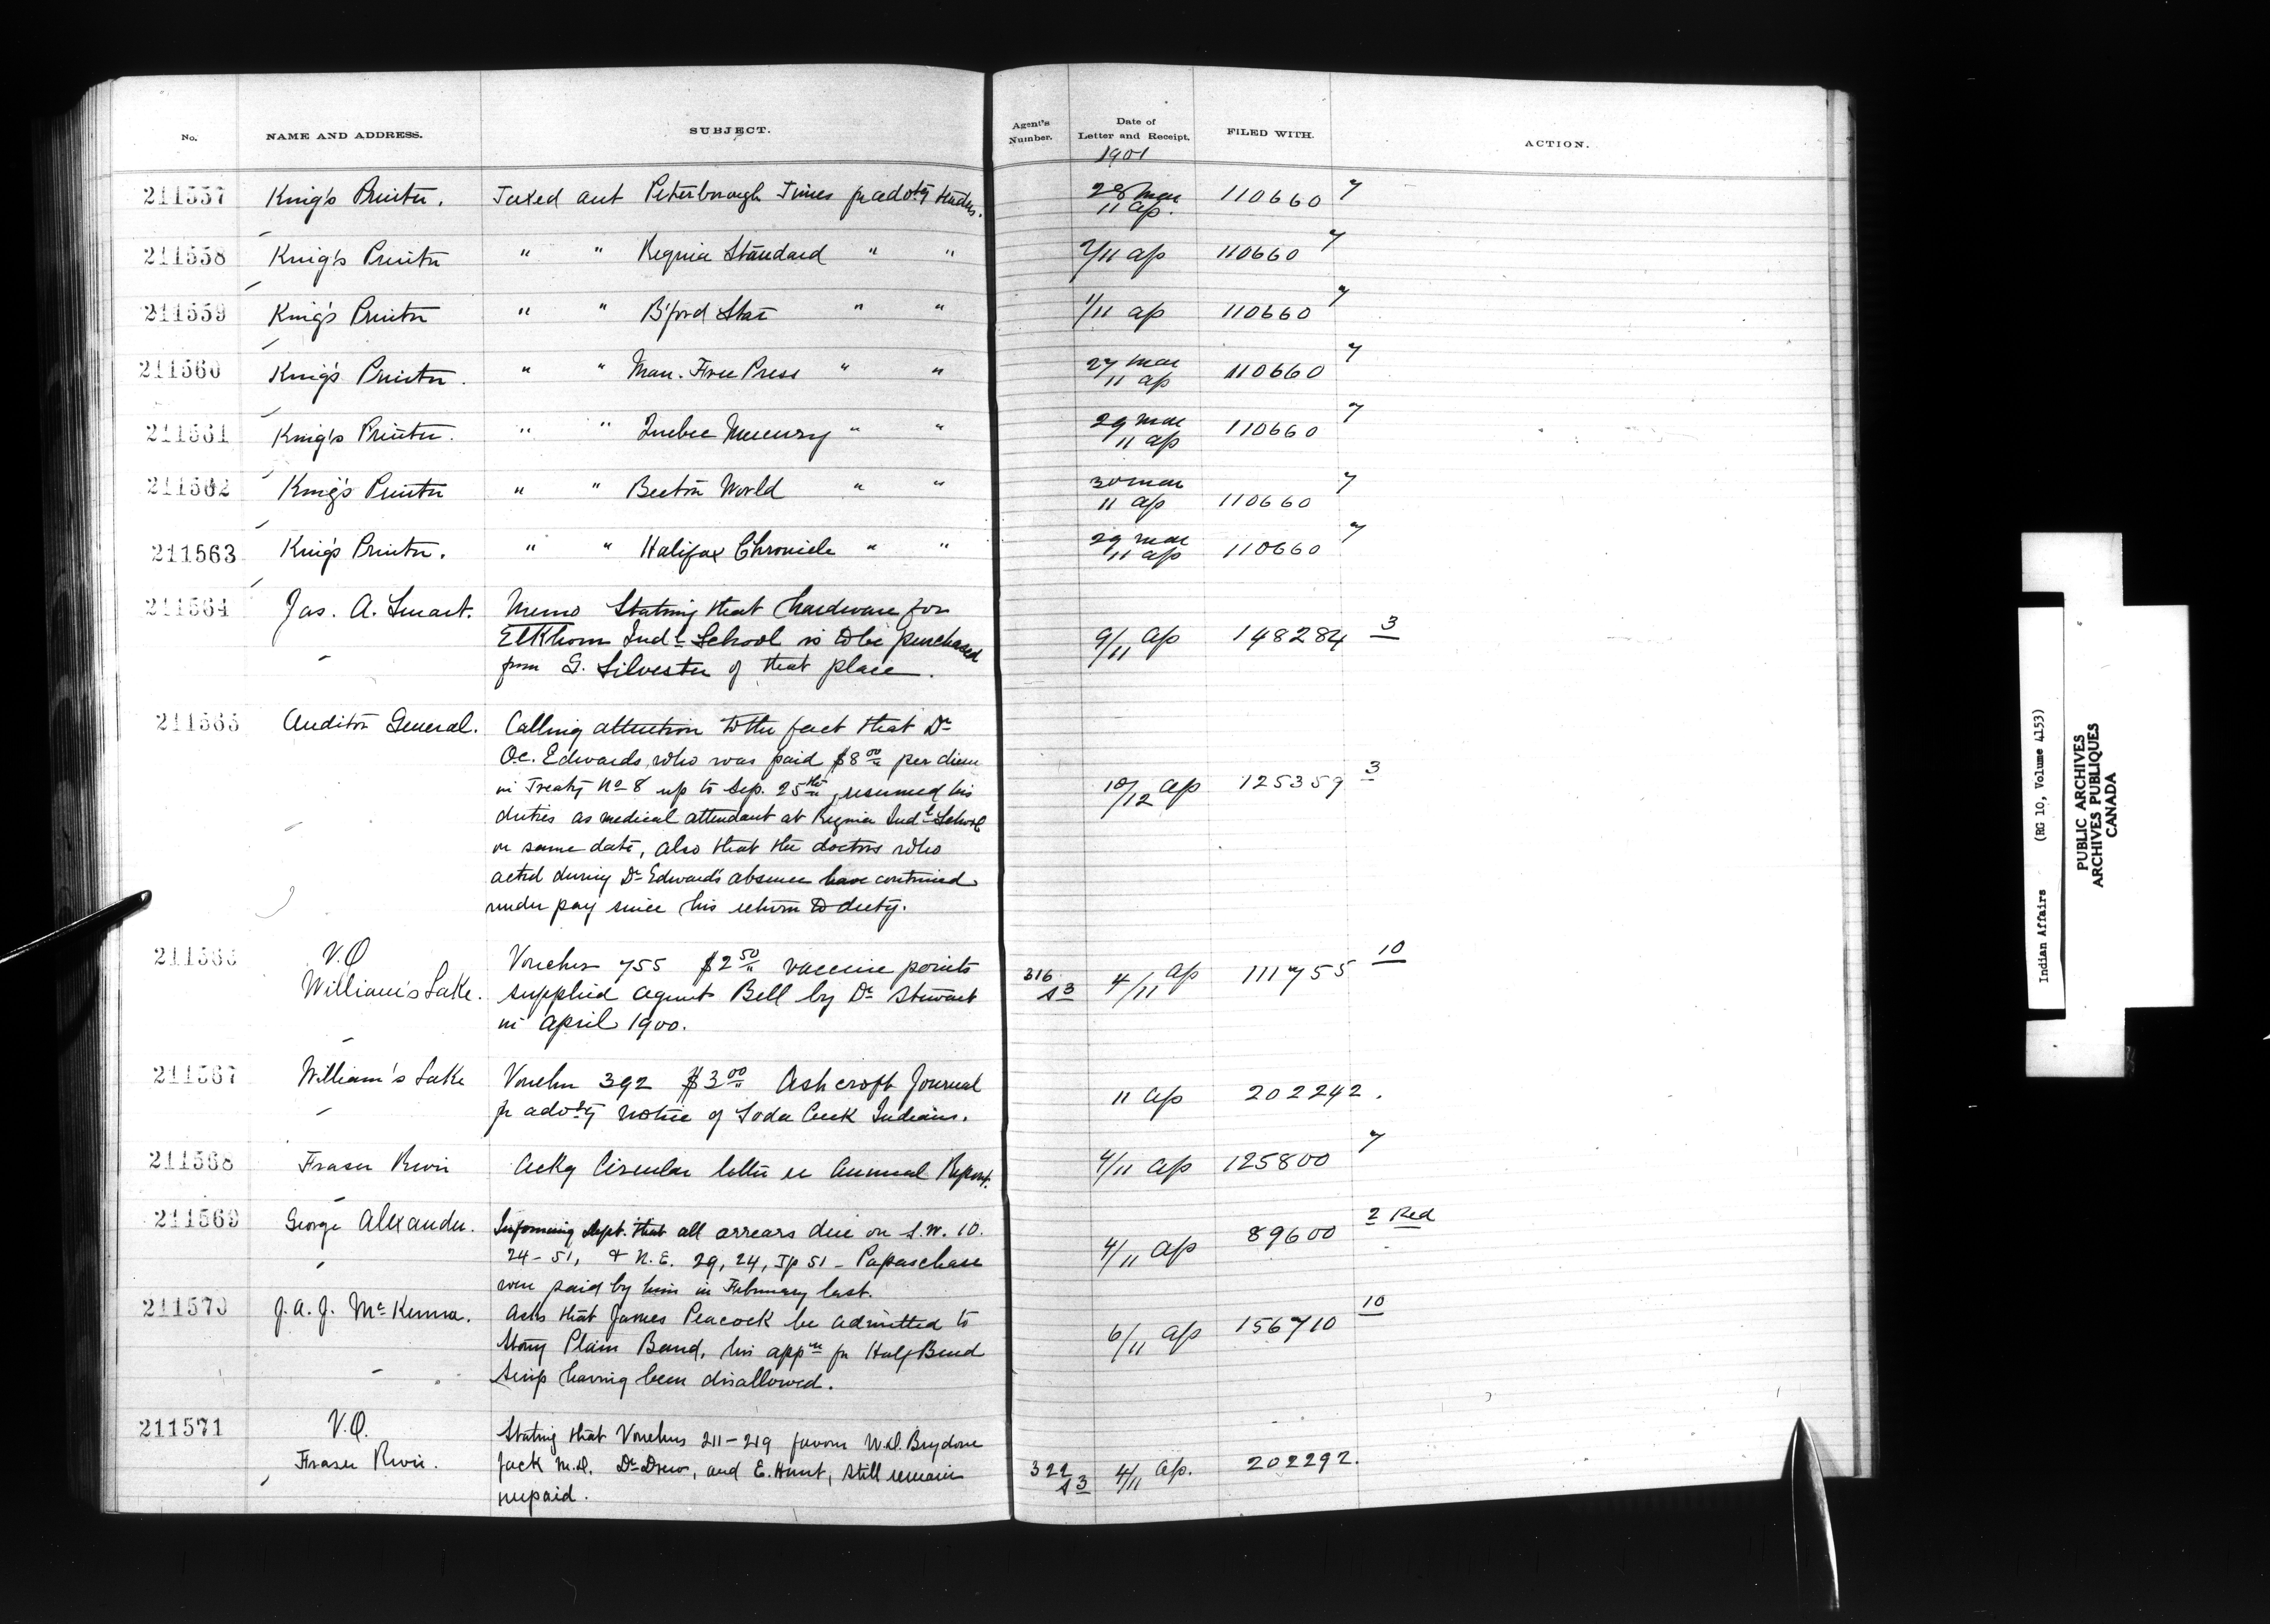 No. NAME AND ADDRESS. SUBJECT. Agent's Number. Date of Letter and Receipt. FILED WITH. ACTION.
1901
211557 King's Printer. Taxed acct Peterborough Times fr advtg tenders. 28 Mar 11 ap. 110660 7
211558 King's Printer " " Regina Standard " " 2/11 ap 110660 7
211559 King's Printer " " B'ford Star " " 1/11 ap 110660 7
211560 King's Printer. " " Man. Free Press " " 27 Mar 11 ap 110660 7
211561 King's Printer. " " Quebec Mercury " " 29 Mar 11 ap 110660 7
211562 King's Printer " " Beeton World " " 30 Mar 11 ap 110660 7
211563 King's Printer. " " Halifax Chronicle " " 29 Mar 11 ap 110660 7
211564 Jas. A. Smart. Memo stating that hardware for
Elkhorn Indl School is to be purchased 9/11 ap 148284 3
from G. Silvester of that place.
211565 Auditor General. Calling attention to the fact that Dr
Oc. Edwards, who was paid $8.00 per diem
in Treaty No 8 up to Sep. 25th, resumed his 10/12 ap 125359 3
duties as medical attendant at Regina Indl School
on same date, also that the doctors who
acted during Dr Edward's absence have continued
under pay since his return to duty.
211566 V.O Voucher 755 $2.50 vaccine points
William's Lake. supplied agent Bell by Dr Stewart 316 s3 4/11 ap 111755 10
in April 1900.
211567 William's Lake Voucher 392 $3.00 Ashcroft Journal 11 ap 202242.
fr advtg notice of Soda Creek Indians.
211568 Fraser River Ackg Circular letter re Annual Report. 4/11 ap 125800 7
211569 George Alexander. Informing Dept. that all arrears due on S.W. 10.
24-51, & N.E. 29, 24, Tp 51 - Papaschase 4/11 ap 89600 2 Red
were paid by him in February last.
211570 J.A.J. McKenna. Asks that James Peacock be admitted to
Stony Plain Band, his appn fr Half Breed 6/11 ap 156710 10
Scrip having been disallowed.
211571 V.O. Stating that Vouchers 211-219 favour W.D. Brydone
Fraser River. Jack M.D. Dr Drew, and E. Hunt, still remain 322 s3 4/11 ap. 202292.
unpaid.
Indian Affairs (RG 10, Volume 4153)
PUBLIC ARCHIVES
ARCHIVES PUBLIQUES
CANADA